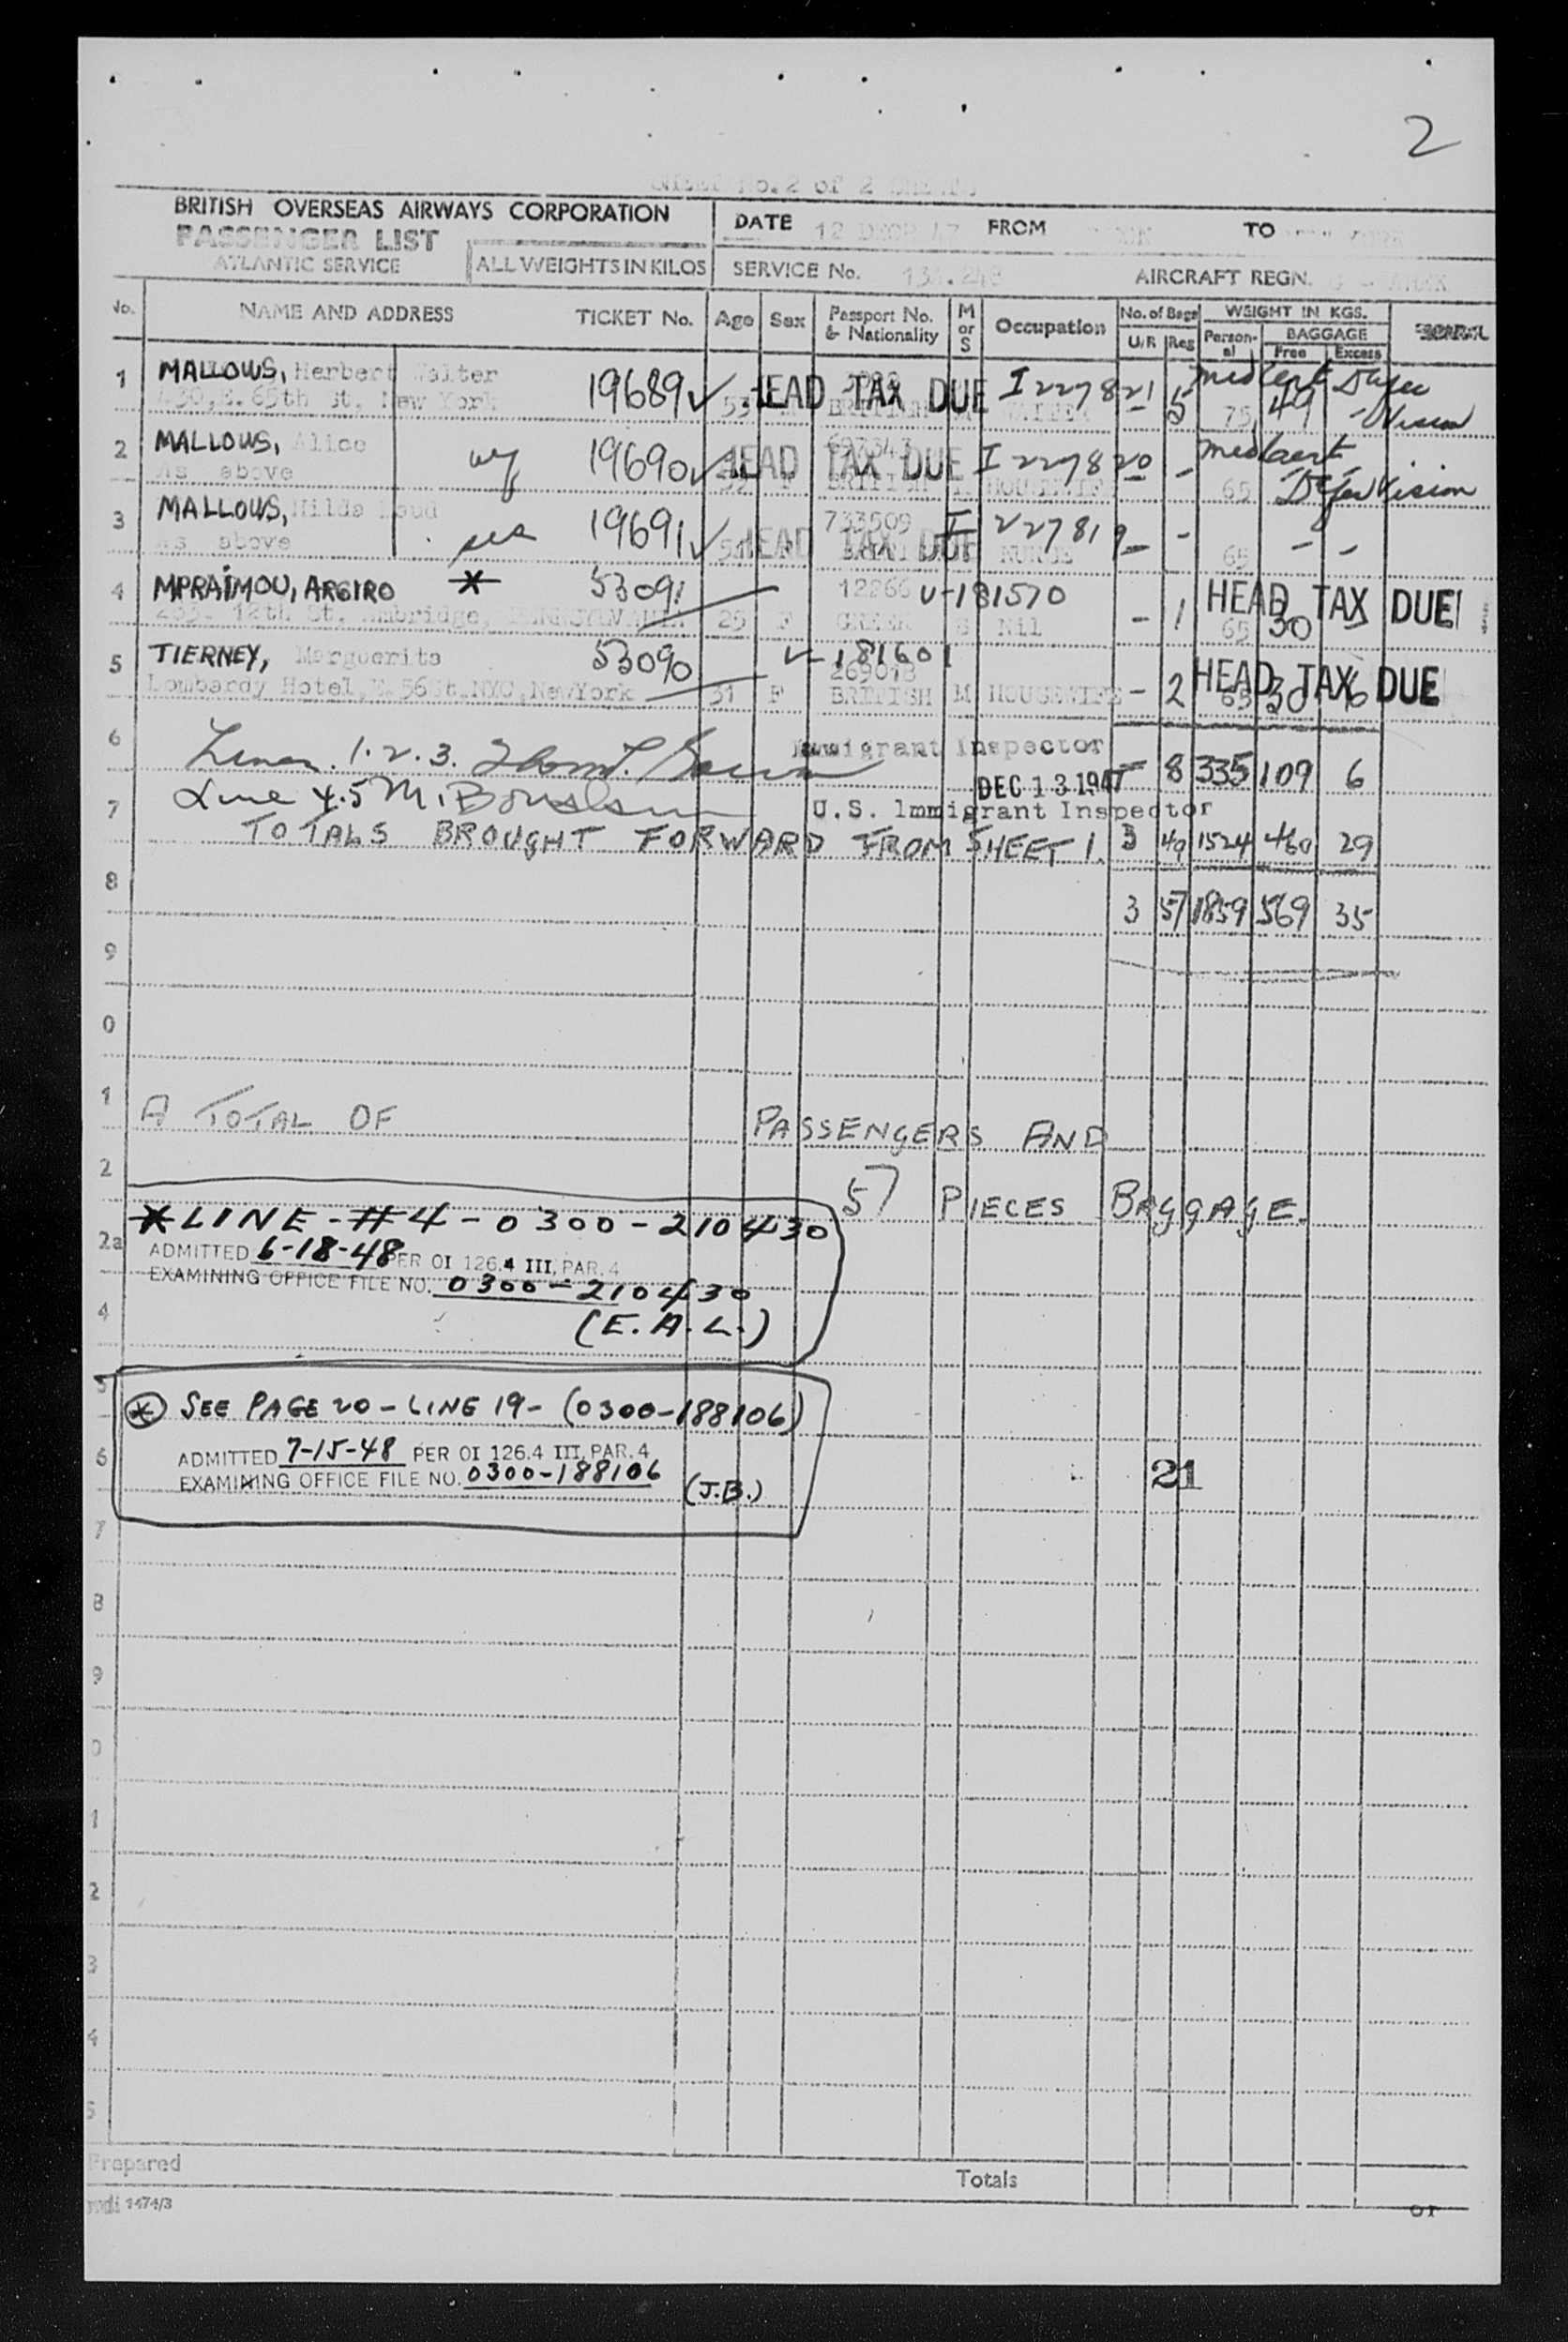 2
No. 2 of 2
BRITISH OVERSEAS AIRWAYS CORPORATION
PASSENGER LIST
ATLANTIC SERVICE
ALL WEIGHTS IN KILOS
DATE 12 DECR 47 FROM TO
SERVICE No. AIRCRAFT REGN.
No. NAME AND ADDRESS TICKET No. Age Sex Passport No. & Nationality M or S Occupation No. of Bags U/R Reg WEIGHT IN KGS. Personal BAGGAGE Free Excess
1 MALLOWS, Herbert Walter 19689 ✓ 53 HEAD TAX DUE I 227821 5 75 49 - Med Cert Defec Vision
E. 85th St, New York BRITISH
2 MALLOWS, Alice 19690 ✓ HEAD TAX DUE 697343 I 227820 - Med Cert
As above BRITISH HOUSEWIFE 65 Defec Vision
3 MALLOWS, Hilda 19691 ✓ 733509 I 227819 - -
As above HEAD TAX DUE NURSE 65 - -
4 MPRAIMOU, ARGIRO * 53091 12266 V-181570 - 1 HEAD TAX DUE
12th St. Ambridge, PENNSYLVANIA 25 F GREEK S Nil 65 30
5 TIERNEY, Marguerite 53090 V-181601 269018 - 2 HEAD TAX DUE
Lombardy Hotel, E. 56 St. NYC, NewYork 31 F BRITISH M HOUSEWIFE 65 30 6
6 Lines. 1. 2. 3. Immigrant Inspector
DEC 13 1947 - 8 335 109 6
Line 4.5 M.
7 U.S. Immigrant Inspector
TOTALS BROUGHT FORWARD FROM SHEET 1. 3 49 1524 460 29
8 3 57 1859 569 35
9
0
1 A TOTAL OF PASSENGERS AND
2 57 PIECES BAGGAGE.
* LINE-#4-0300-210430
2a ADMITTED 6-18-48 PER OI 126.4 III, PAR. 4
EXAMINING OFFICE FILE NO. 0300-210430
4 (E.A.L.)
5 * SEE PAGE 20 - LINE 19 - (0300-188106)
6 ADMITTED 7-15-48 PER OI 126.4 III, PAR. 4
EXAMINING OFFICE FILE NO. 0300-188106 (J.B.)
21
7
8
9
0
1
2
3
4
5
Prepared
Totals
1474/3
or